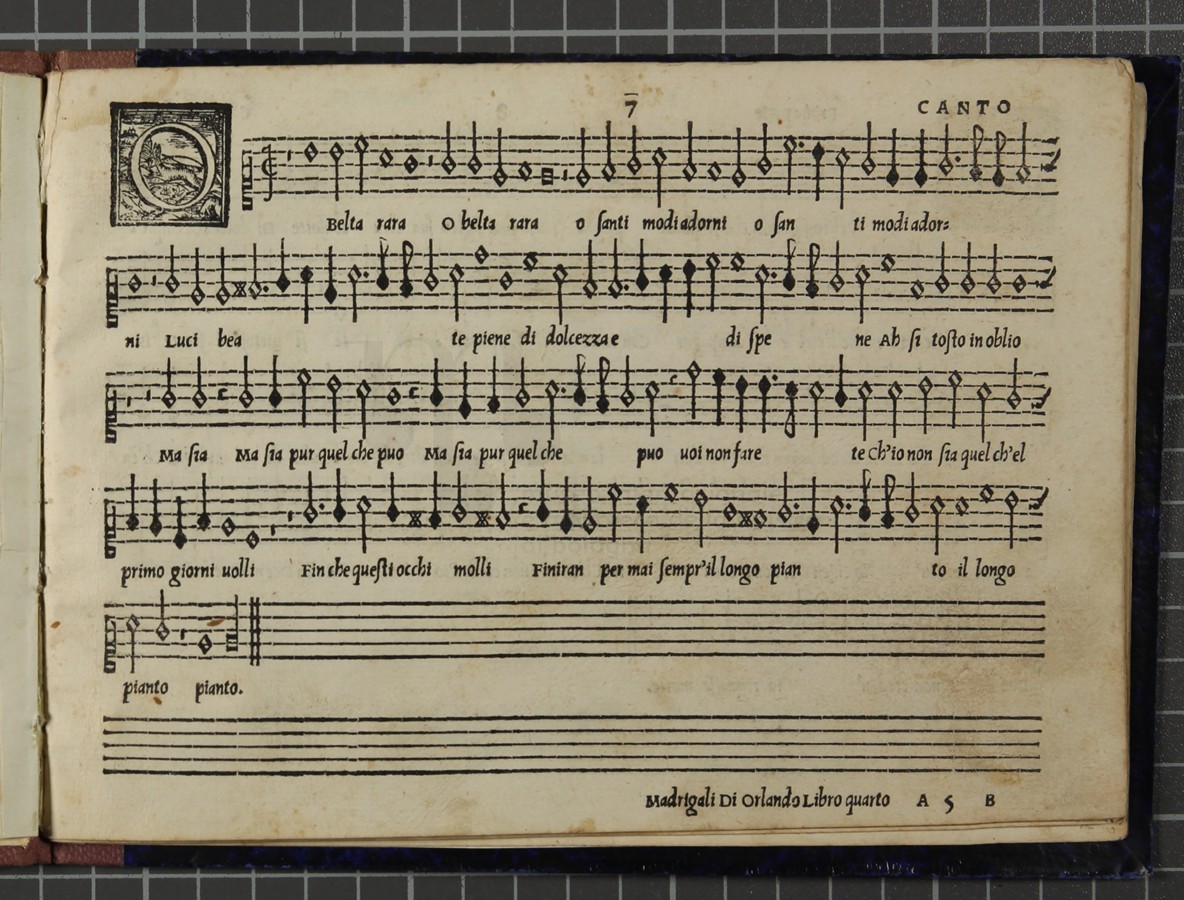 7 CANTO
O Belta rara O belta rara o santi modi adorni o san ti modi ador=
ni Luci bea te piene di dolcezza e di spe ne Ah si tosto in oblio
Ma sia Ma sia pur quel che puo Ma sia pur quel che puo uoi non fare te Ch'io non sia quel ch'el
primo giorni uolli Fin che questi occhi molli Finiran per mai sempr'il longo pian to il longo
pianto pianto.
Madrigali Di Orlando Libro quarto A 5 B